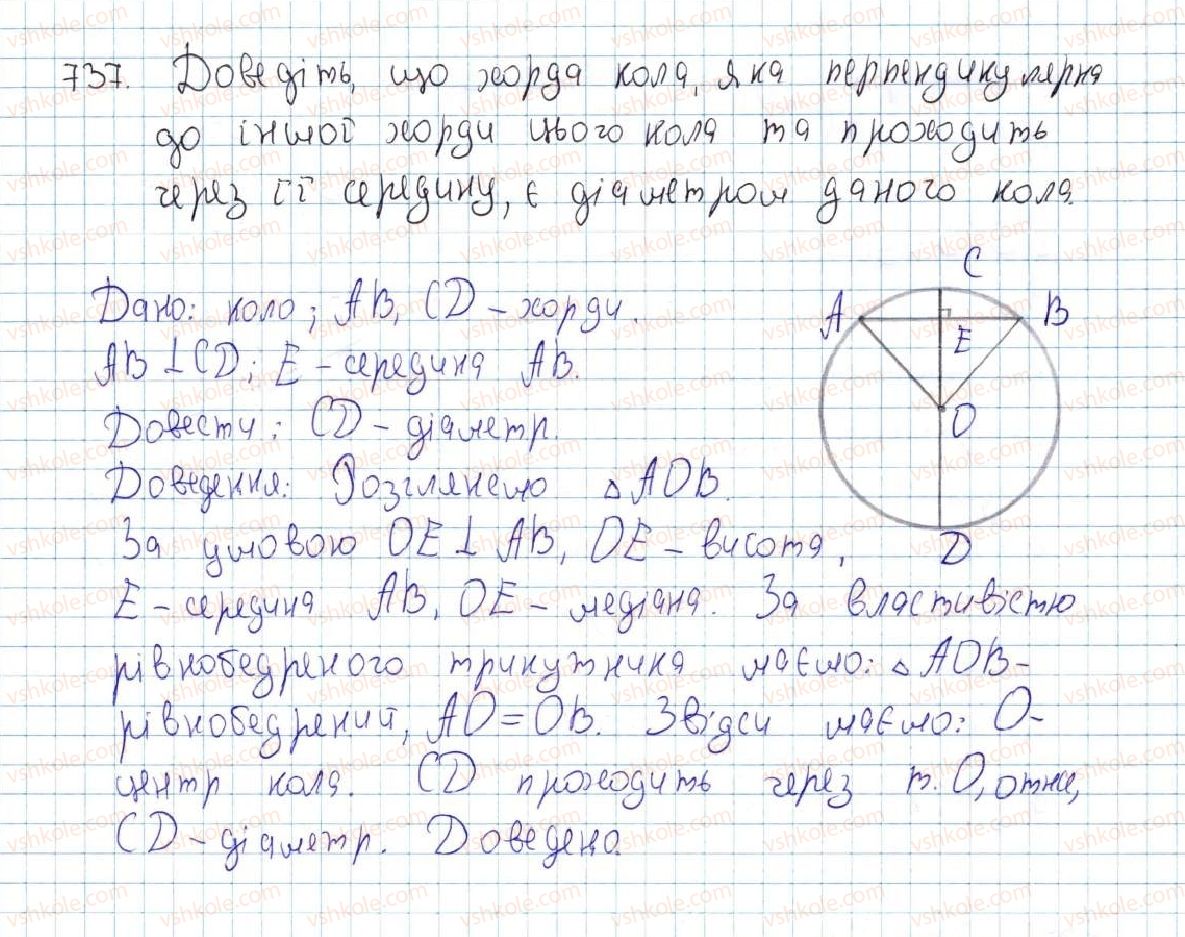 737. Доведіть, що хорда кола, яка перпендикулярна
до іншої хорди цього кола та проходить
через її середину, є діаметром даного кола.
Дано: коло; AB, CD – хорди.
AB ⊥ CD; E – середина AB.
Довести: CD – діаметр.
Доведення: Розглянемо △AOB.
За умовою OE ⊥ AB, OE – висота,
E – середина AB, OE – медіана. За властивістю
рівнобедреного трикутника маємо: △AOB –
рівнобедрений, AO = OB. Звідси маємо: O –
центр кола. CD проходить через т. O, отже,
CD – діаметр. Доведено.
C
A
B
E
O
D
vshkole.com